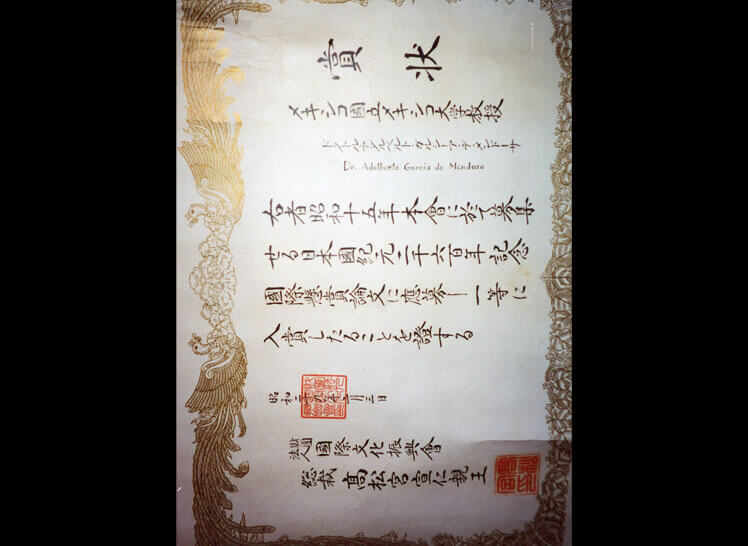 賞状
メキシコ國立メキシコ大学教授
ドクトルアダルベルト・ガルシーア・デ・メンドーサ
Dr. Adalberto García de Mendoza
右者昭和十五年本會に於て募集
せる日本國紀元二千六百年記念
國際懸賞論文に應募し一等に
入賞したることを證する
昭和二十九年 月三日
財團法人國際文化振興會
総裁 高松宮宣仁親王